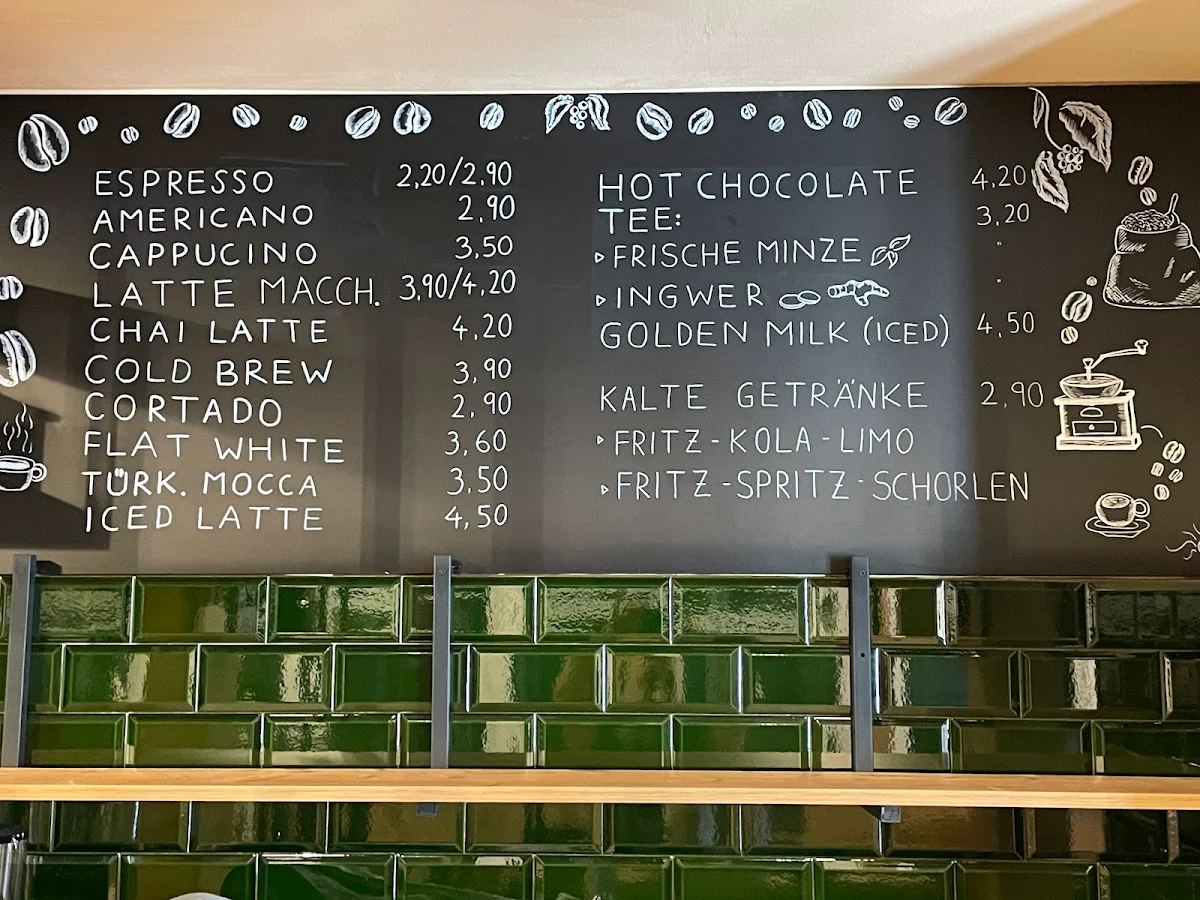 ESPRESSO 2,20/2,90
AMERICANO 2,90
CAPPUCINO 3,50
LATTE MACCH. 3,90/4,20
CHAI LATTE 4,20
COLD BREW 3,90
CORTADO 2,90
FLAT WHITE 3,60
TÜRK. MOCCA 3,50
ICED LATTE 4,50
HOT CHOCOLATE 4,20
TEE: 3,20
▹FRISCHE MINZE "
▹INGWER "
GOLDEN MILK (ICED) 4,50
KALTE GETRÄNKE 2,90
▹FRITZ-KOLA-LIMO
▹FRITZ-SPRITZ-SCHORLEN